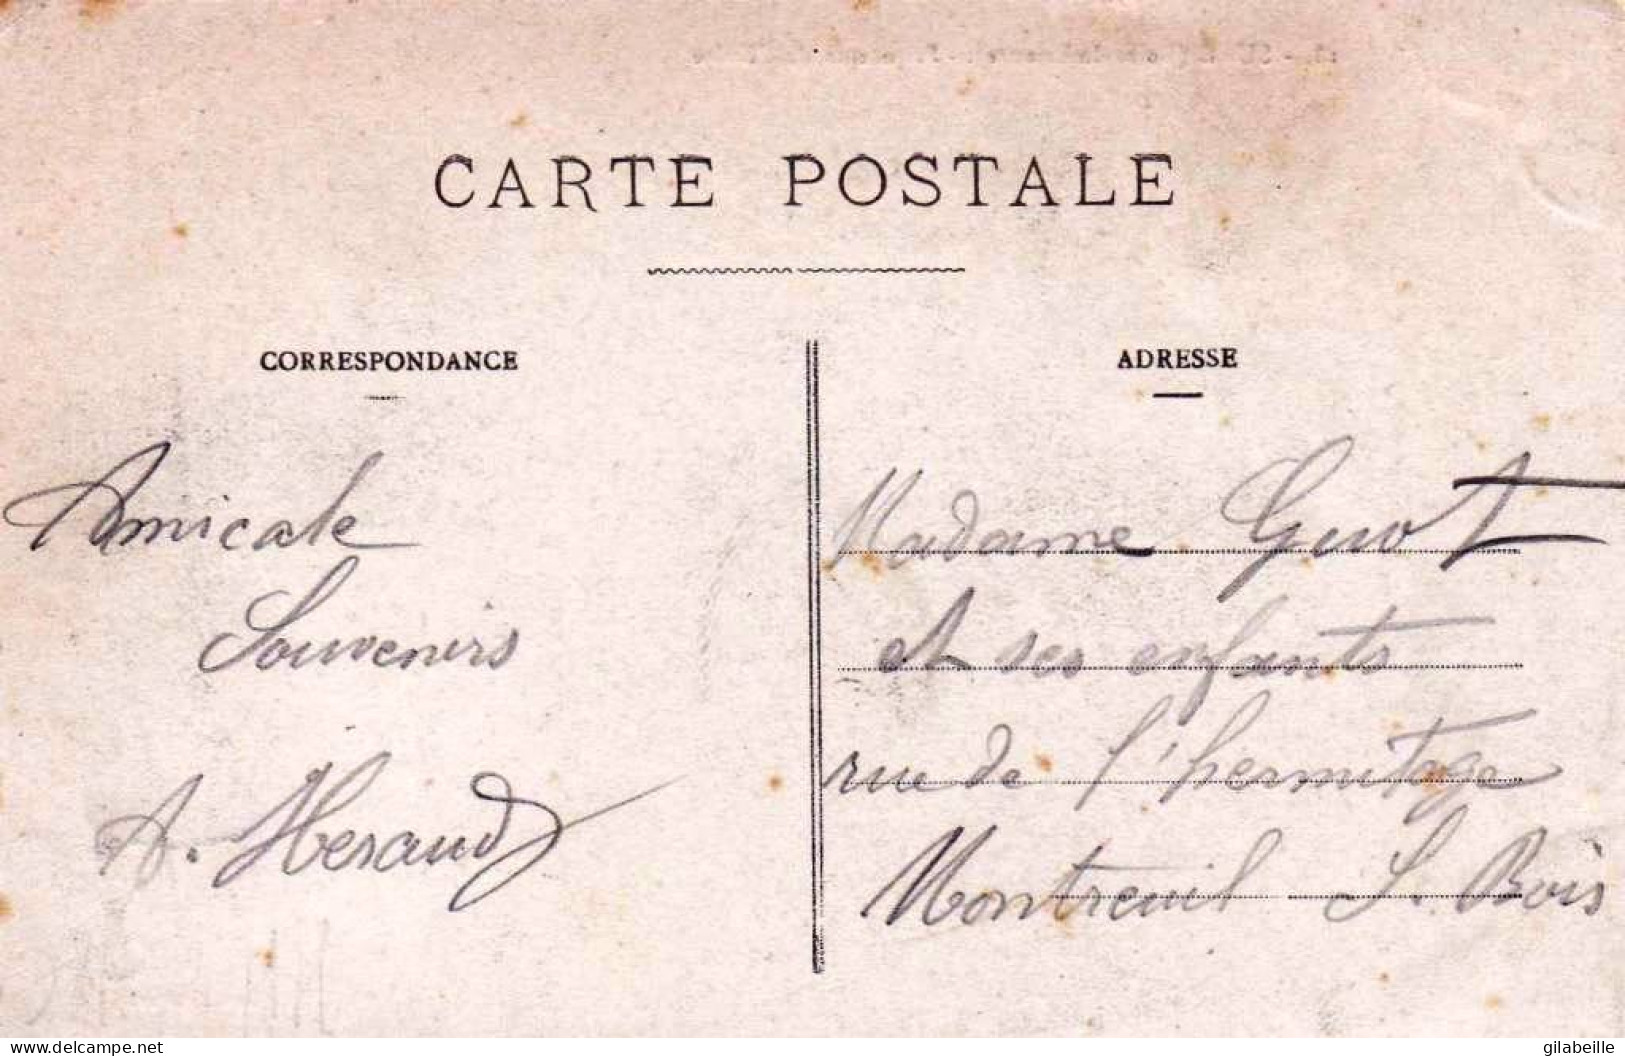 CARTE POSTALE
CORRESPONDANCE
Amicale
Souvenirs
A. Heraud
ADRESSE
Madame Guiot
et ses enfants
rue de l'hermitage
Montreuil S. Bois
delcampe.net
gilabeille